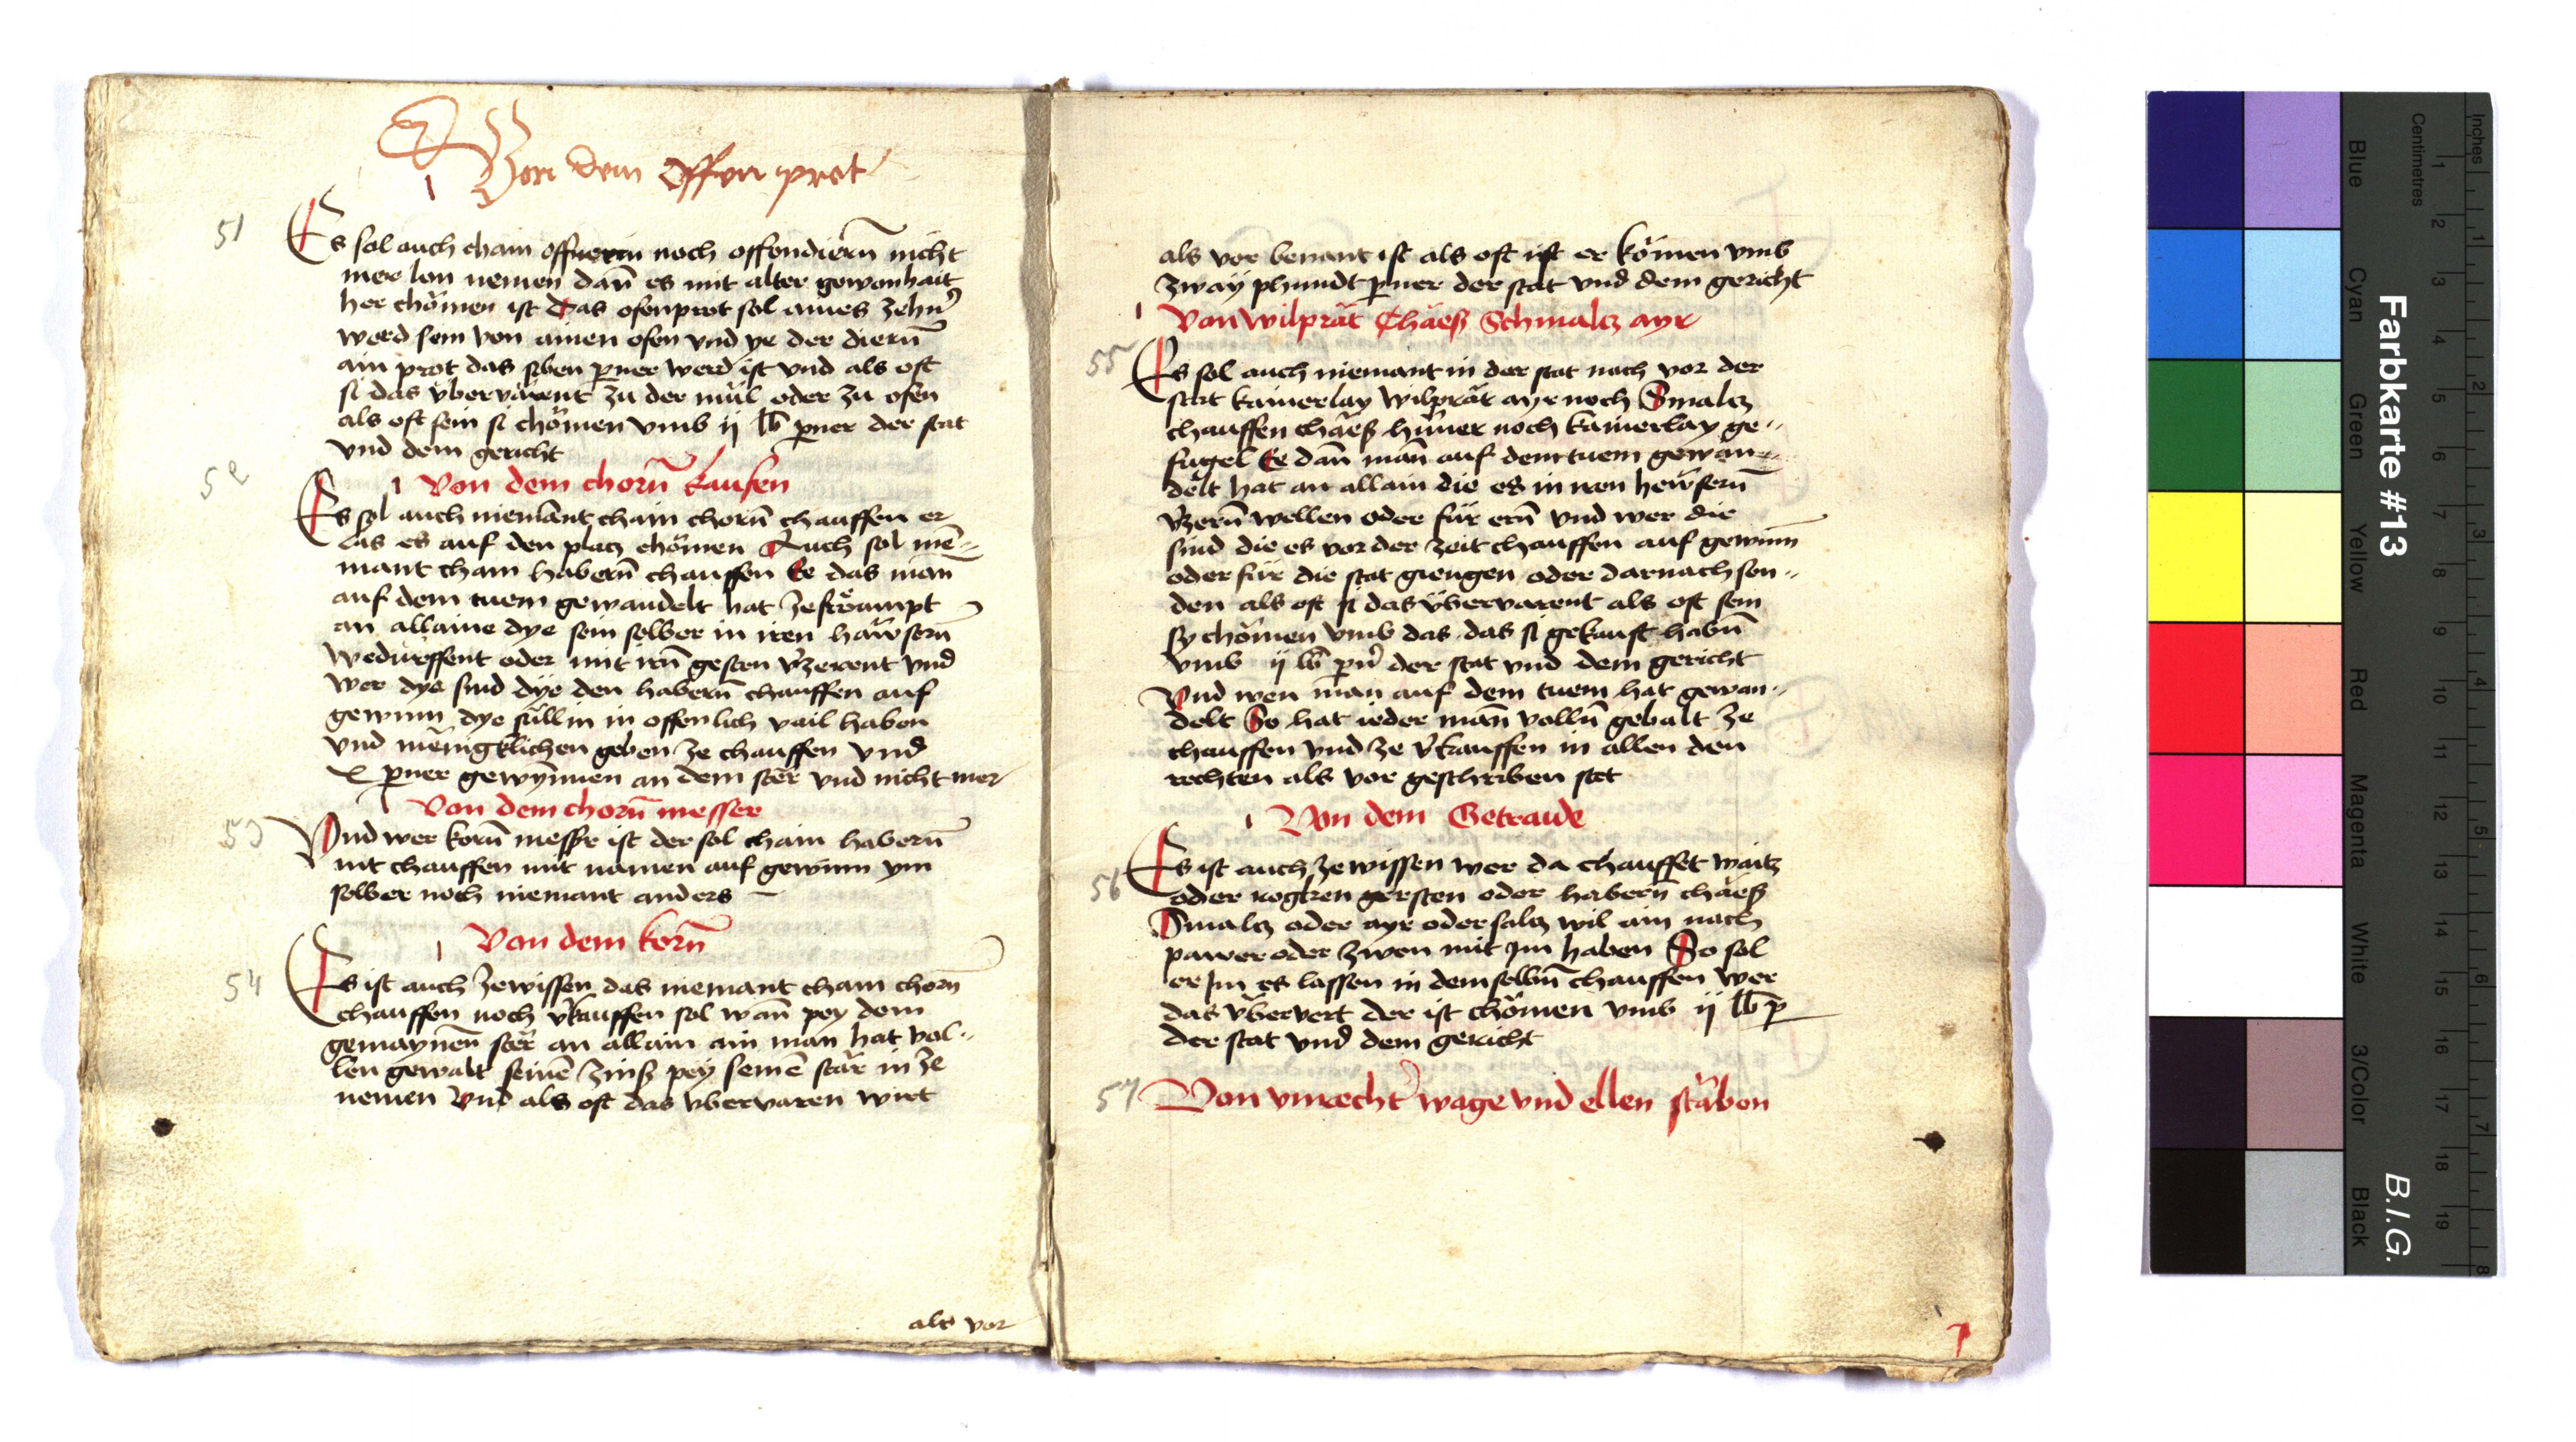 Von dem Offen prot
51
Es sol auch chain offnerin noch offendierñ nicht
mer lon nemen dañ es mit alter gewonhait
her chömen ist Das ofenprot sol aines zehn̕
werd sein von ainen ofen vnd ye der dierñ
ain prot das siben perner werd ist vnd als oft
si das vbervärent zu der mül oder zu ofen
als oft sein si chömen vmb ij lb perner der stat
vnd dem gericht
52
Von dem chorñ kaufen
Es sol auch niemant chain chorñ chauffen er
das es auf den placz chömen Auch sol nie-
mant chain haberñ chauffen Ee das man
auf dem tuem gewandelt hat
an allaine dye sein selber in iren hawserñ
bedürffent oder mit irñ gesten v̕zerent vnd
wer dye sind dye den haberñ chauffen auf
gewinn dye süllin in offenlich vail haben
vnd mënigklichen geben ze chauffen vnd
x perner gewynnen an dem stër vnd nicht mer
53
Von dem chorñ messer
Vnd wer korñ messer ist der sol chain haberñ
nit chauffen mit namen auf gewinn ym
selber noch niemant anders
Von dem korñ
54
Es ist auch ze wissen das niemant chain chorñ
chauffen noch v̕kauffen sol wañ pey dem
gemaynen stër an allain ain man hat vol-
len gewalt seinē zinß pey seinē stär in ze
nemen Vnd als oft das vbervaren wirt
als vor
als vor benant ist als oft ist er kömen vmb
zway phundt perner der stat vnd dem gericht
Von wilprät Chäeß Schmalcz ayr
55
Es sol auch niemant in der stat nach vor der
stat kainerlay wilprät ayr noch Smalcz
chauffen chäeß hüner noch kainerlay ge-
fügel Ee dañ mañ auf dem tuem gewan-
delt hat an allain die es in iren hewserñ
v̕zerñ wellen oder für erñ vnd wer die
sind die es vor der zeit chauffen auf gewinn
oder für die stat giengen oder darnach sen-
den als oft si das vbervarent als oft sein
sy chömen vmb das das si gekauft habñ
vmb ij lb pn̕ der stat vnd dem gericht
Vnd wen man auf dem tuem hat gewan-
delt So hat ieder mañ vollñ gebalt ze
chauffen vnd ze v̕kauffen in allen den
rechten als vor geschriben stet
Von dem Getraide
56
Es ist auch ze wissen wer da chauffet waitz
oder rogken gersten oder haberñ chäeß
Smalcz oder ayr oder salcz wil ain nach
pawer oder zwen mit jm haben So sol
er jm es lassen in demselbñ chauffen wer
das vbervert der ist chömen vmb ij lb p
der stat vnd dem gericht
57
Von vnrecht̕ wage vnd ellen stäben
Farbkarte #13
B.I.G.
Inches
Centimetres
1 2 3 4 5 6 7 8 9 10 11 12 13 14 15 16 17 18 19
1 2 3 4 5 6 7 8
Blue
Cyan
Green
Yellow
Red
Magenta
White
3/Color
Black